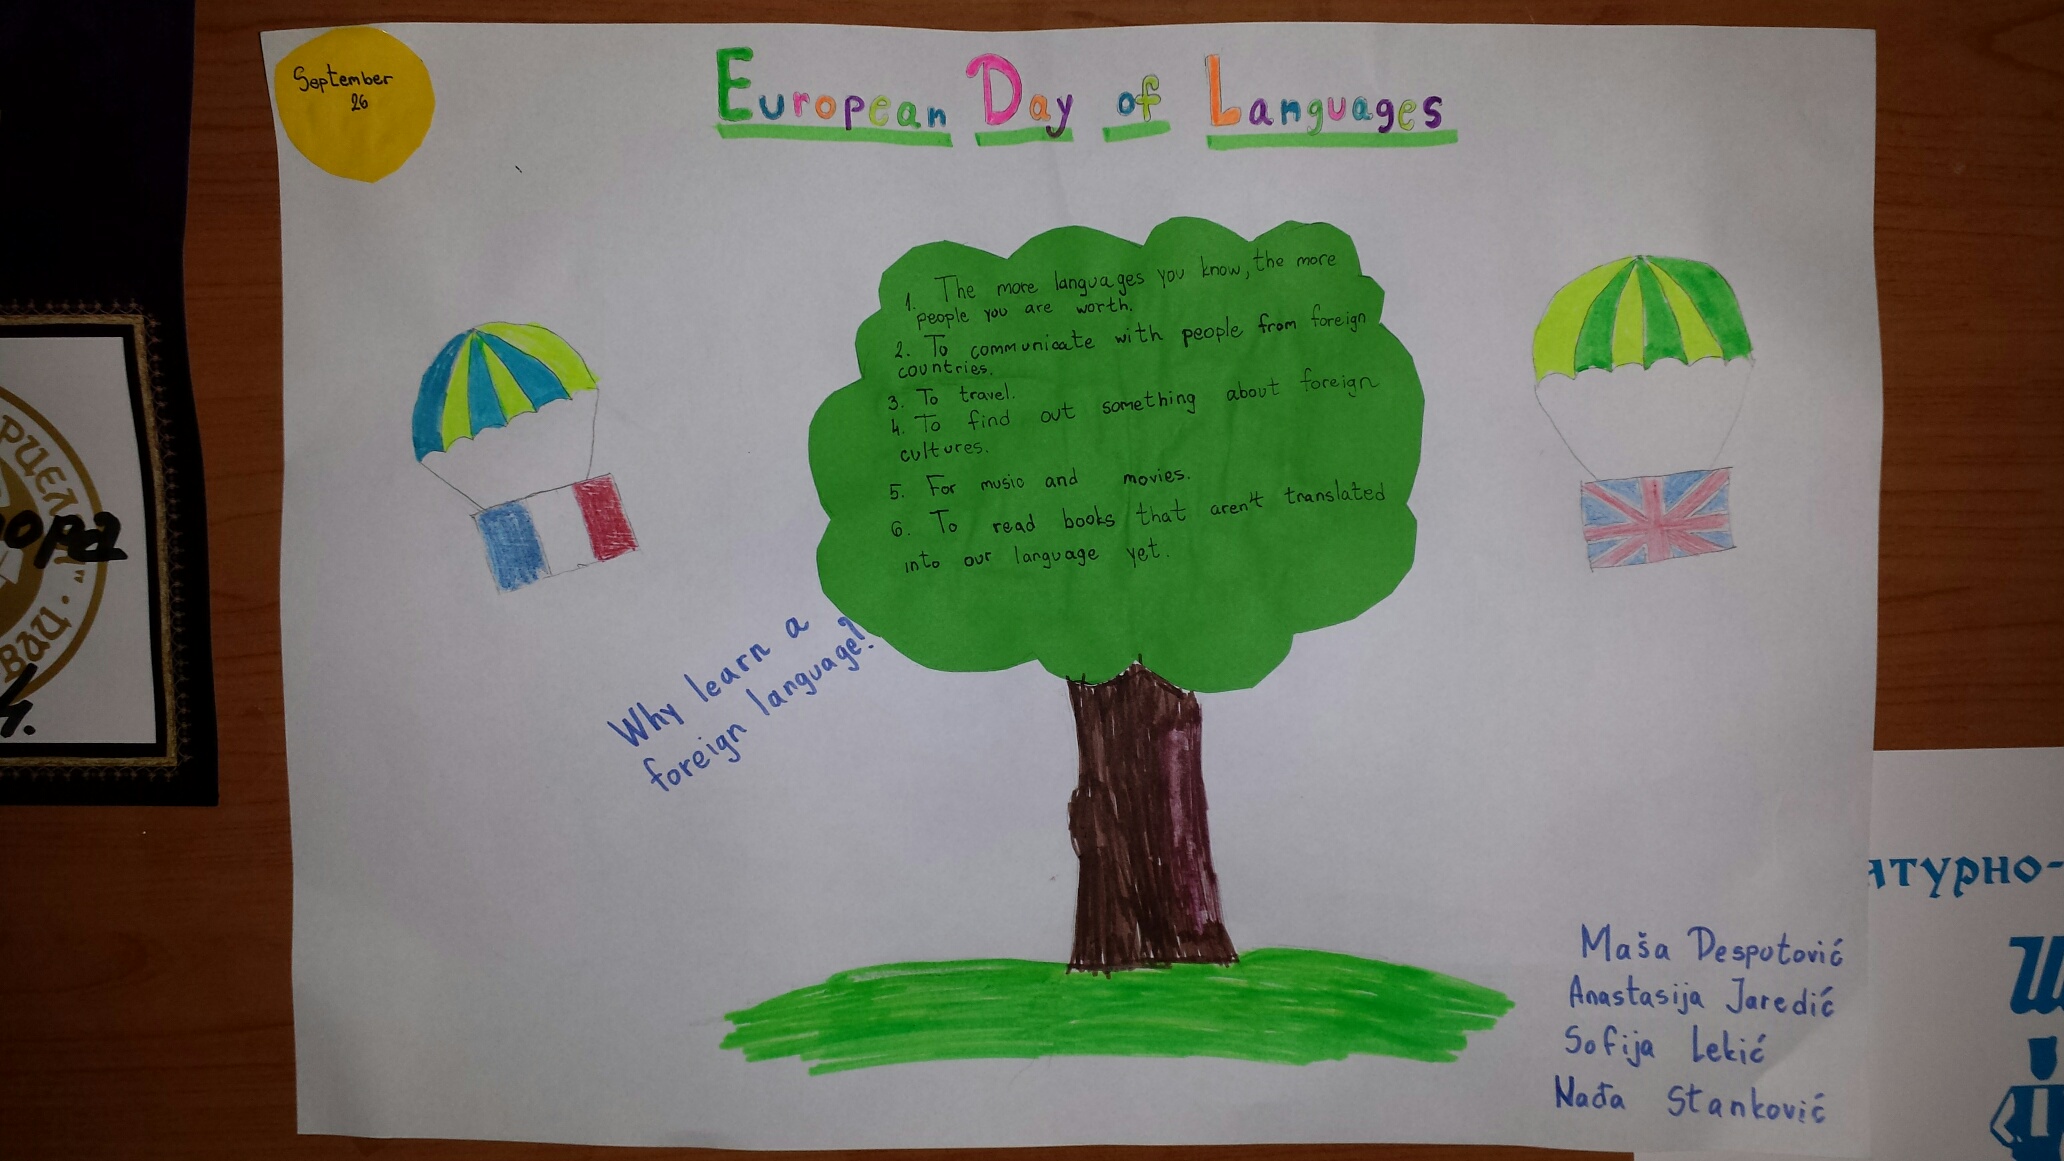 September
26
European Day of Languages
1. The more languages you know, the more
people you are worth.
2. To communicate with people from foreign
countries.
3. To travel.
4. To find out something about foreign
cultures.
5. For music and movies.
6. To read books that aren't translated
into our language yet.
Why learn a
foreign language?
Maša Despotović
Anastasija Jaredić
Sofija Lekić
Nađa Stanković